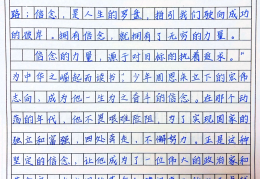 路；信念，是人生的罗盘，指引我们驶向成功
的彼岸。拥有信念，就拥有了无穷的力量。
信念的力量，源于对目标的执着追求。“
为中华之崛起而读书”，少年周恩来立下的宏伟
志向，成为他一生为之奋斗的信念。在那个动
荡的年代，他不畏艰难险阻，为了实现国家的
独立和富强，四处奔走，不懈努力。正是这种
坚定的信念，让他成为了一位伟大的政治家和